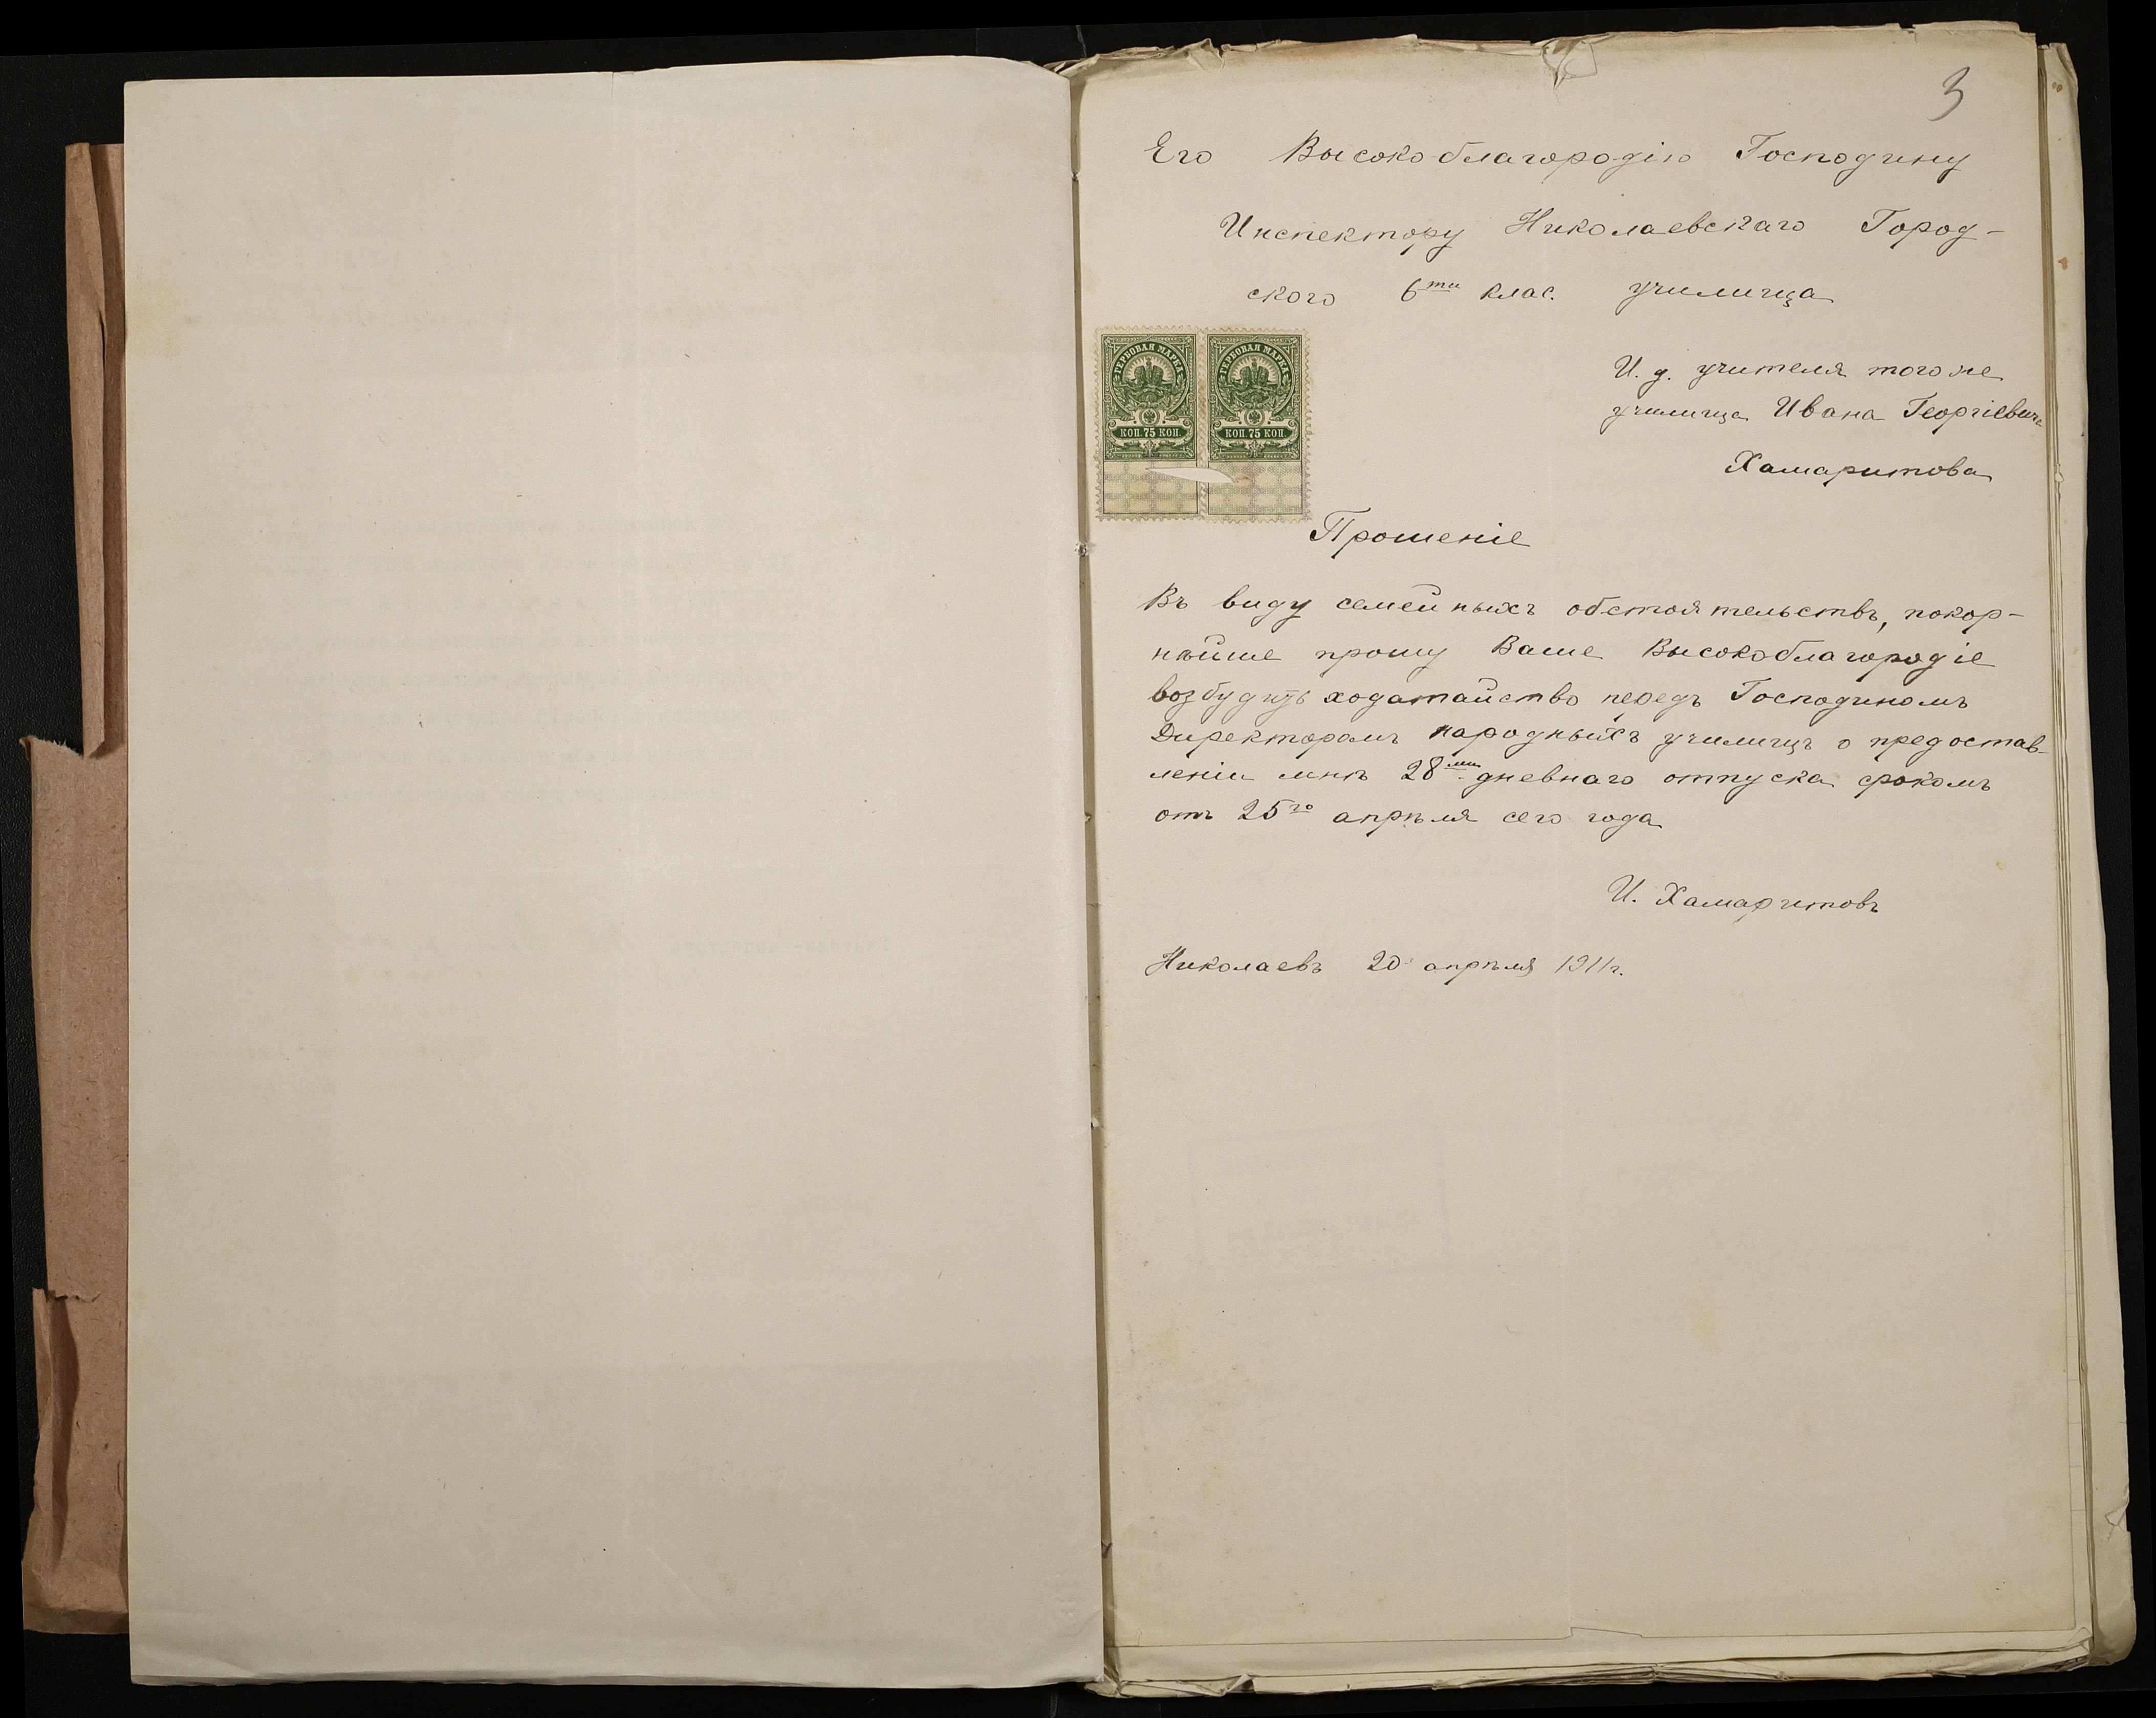 3
Его Высокоблагородію Господину
Инспектору Николаевскаго Город-
ского 6ти клас. училища
И. д. учителя того же
училища Ивана Георгіевича
Хамаритова
ГЕРБОВАЯ МАРКА ГЕРБОВАЯ МАРКА
КОП. 75 КОП. КОП. 75 КОП.
Прошеніе
Въ виду семейныхъ обстоятельствъ, покор-
нѣйше прошу Ваше Высокоблагородіе
возбудить ходатайство передъ Господиномъ
Директоромъ народныхъ училищъ о предостав-
леніи мнѣ 28ми дневнаго отпуска срокомъ
отъ 25го апрѣля сего года
И. Хамаритовъ
Николаевъ 20 апрѣля 1911 г.